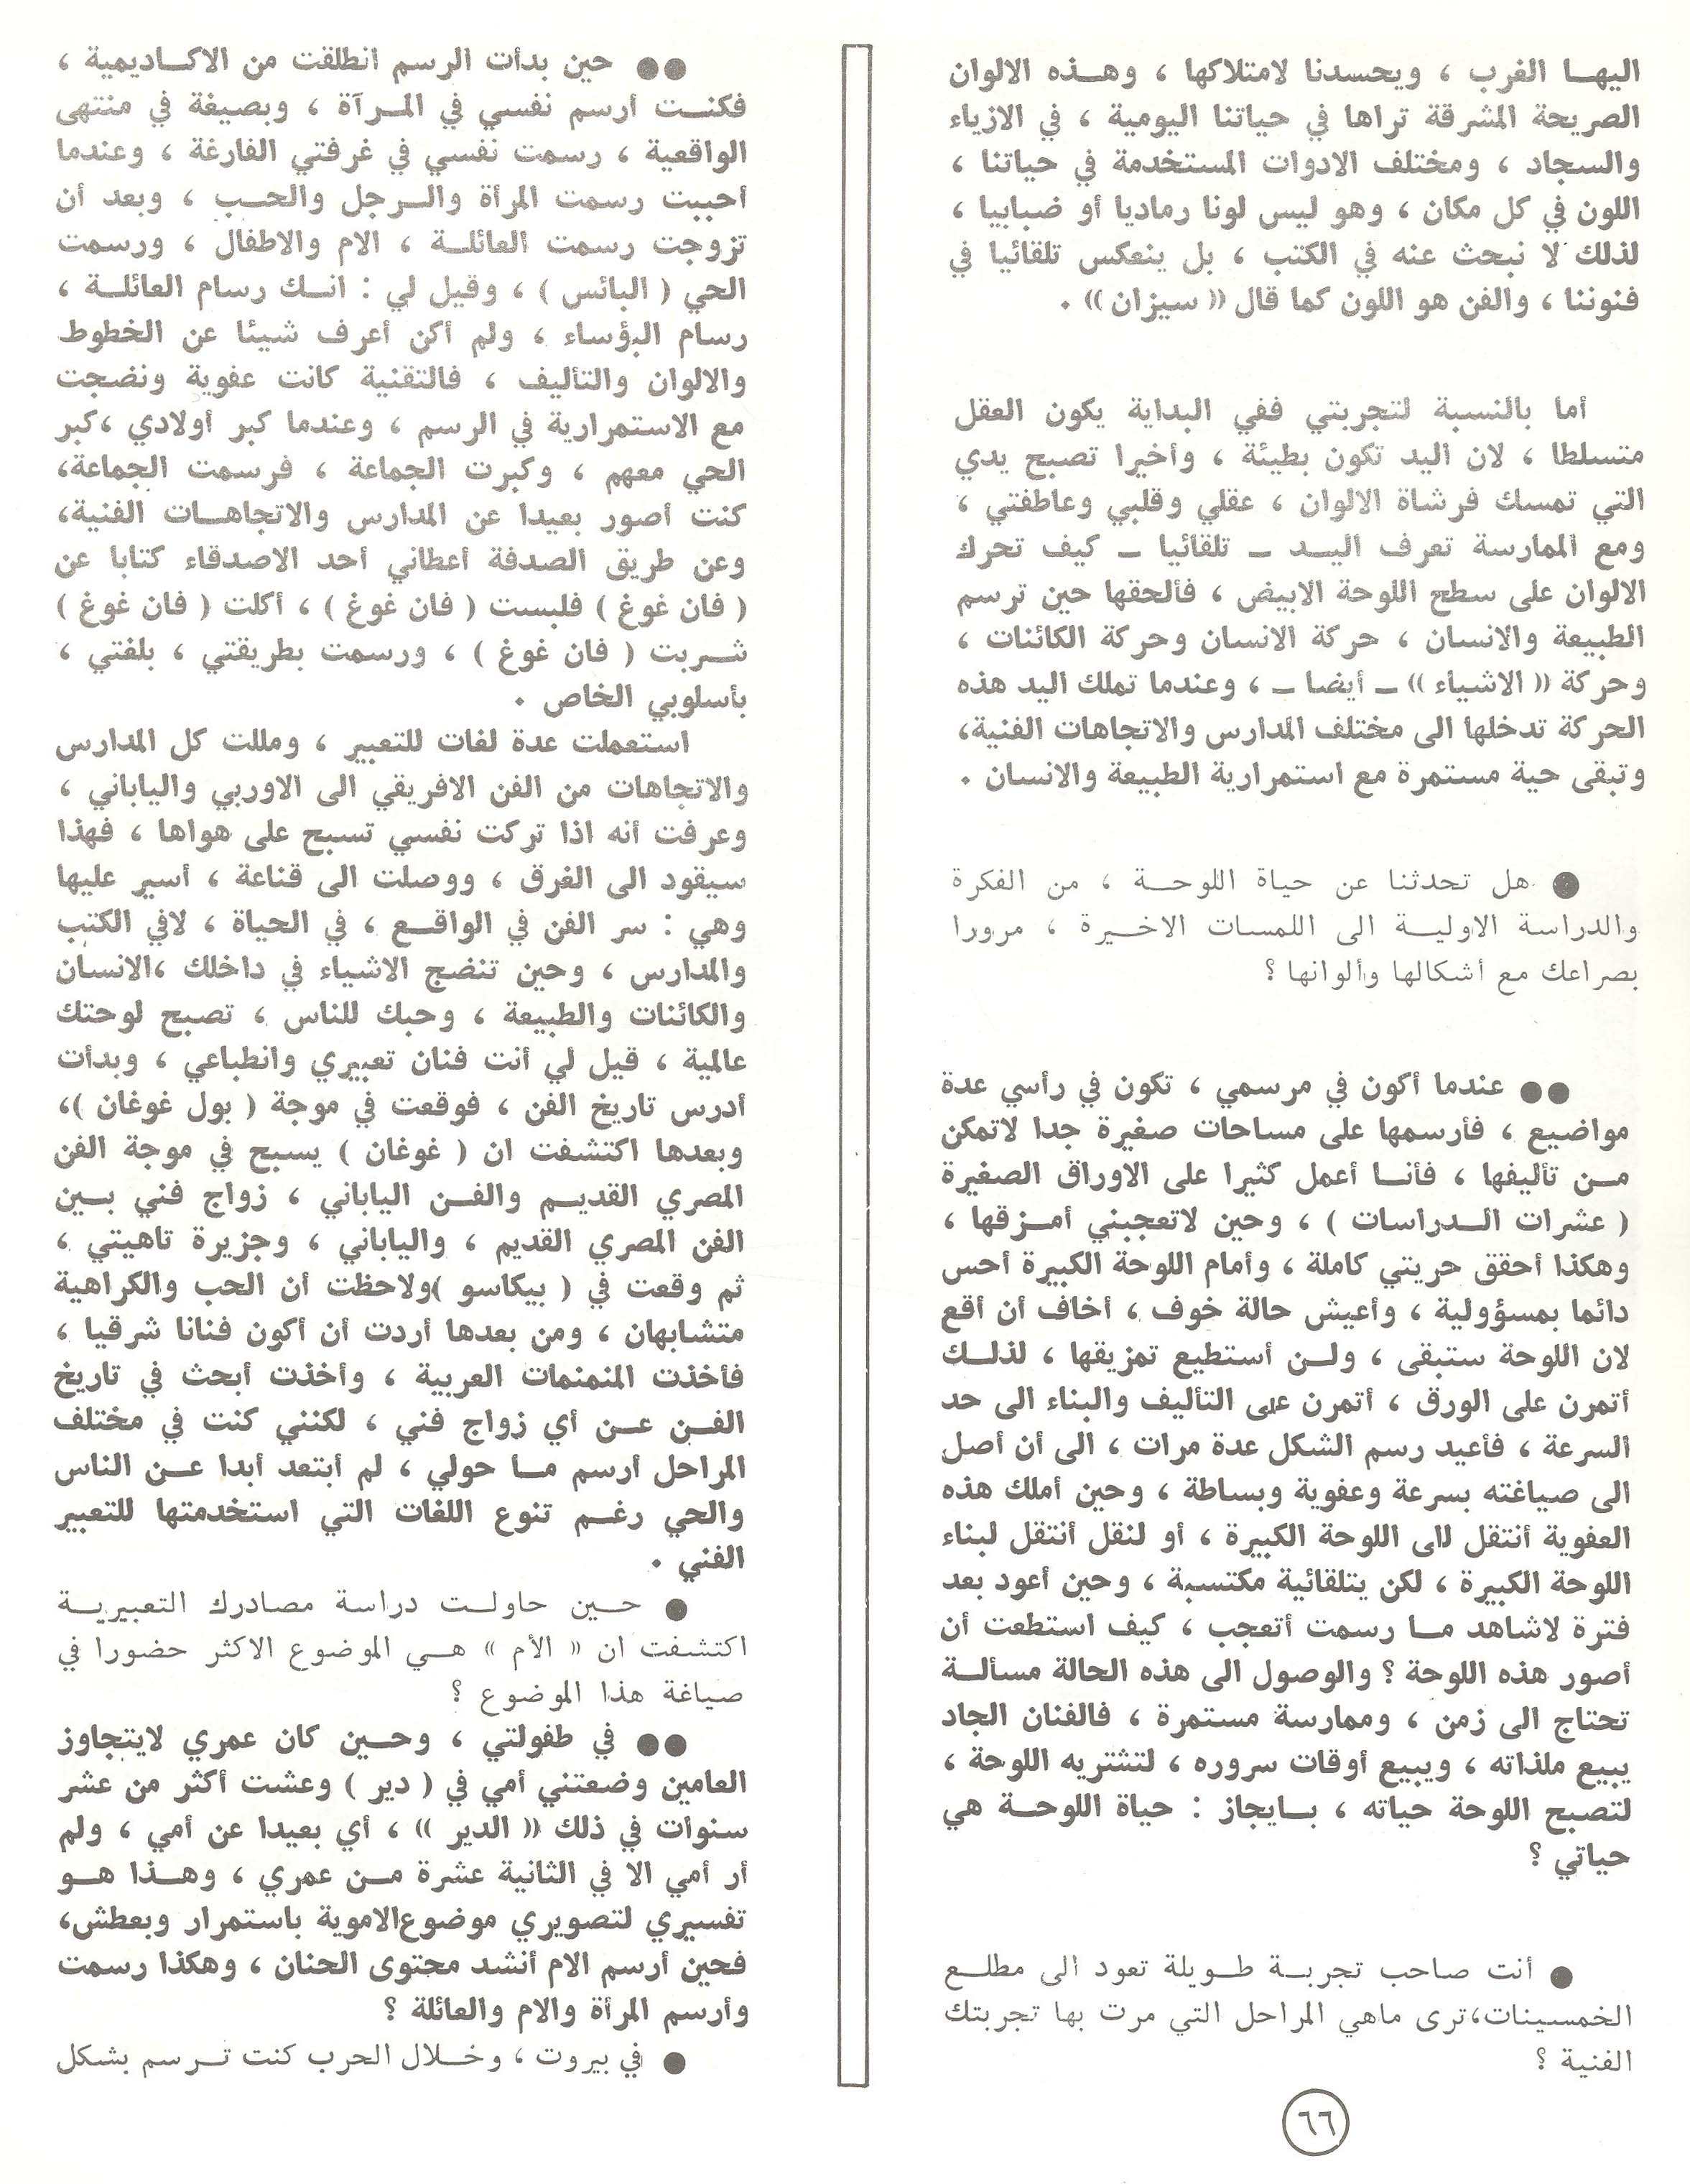 اليهـا الغرب ، ويحسدنا لامتلاكها ، وهـذه الالوان
الصريحة المشرقة تراها في حياتنا اليومية ، في الازياء
والسجاد ، ومختلف الادوات المستخدمة في حياتنا ،
اللون في كل مكان ، وهو ليس لونا رماديا أو ضبابيا ،
لذلك لا نبحث عنه في الكتب ، بل ينعكس تلقائيا في
فنوننا ، والفن هو اللون كما قال « سيزان » .
أما بالنسبة لتجربتي ففي البداية يكون العقل
متسلطا ، لان اليد تكون بطيئة ، وأخيرا تصبح يدي
التي تمسك فرشاة الالوان ، عقلي وقلبي وعاطفتي ،
ومع الممارسة تعرف اليـد ـ تلقائيا ـ كيف تحرك
الالوان على سطح اللوحة الابيض ، فألحقها حين ترسم
الطبيعة والانسان ، حركة الانسان وحركة الكائنات ،
وحركة « الاشياء » ـ أيضا ـ ، وعندما تملك اليد هذه
الحركة تدخلها الى مختلف المدارس والاتجاهات الفنية،
وتبقى حية مستمرة مع استمرارية الطبيعة والانسان .
● هل تحدثنا عن حياة اللوحـة ، من الفكرة
والدراسة الاوليـة الى اللمسات الاخـيرة ، مرورا
بصراعك مع أشكالها وألوانها ؟
●● عندما أكون في مرسمي ، تكون في رأسي عدة
مواضيع ، فأرسمها على مساحات صغيرة جدا لاتمكن
مـن تأليفها ، فأنـا أعمل كثيرا على الاوراق الصغيرة
( عشرات الـدراسات ) ، وحين لاتعجبني أمـزقها ،
وهكذا أحقق حريتي كاملة ، وأمام اللوحة الكبيرة أحس
دائما بمسؤولية ، وأعيش حالة خوف ، أخاف أن أقع
لان اللوحة ستبقى ، ولـن أستطيع تمزيقها ، لذلـك
أتمرن على الورق ، أتمرن على التأليف والبناء الى حد
السرعة ، فأعيد رسم الشكل عدة مرات ، الى أن أصل
الى صياغته بسرعة وعفوية وبساطة ، وحين أملك هذه
العفوية أنتقل لاى اللوحة الكبيرة ، أو لنقل أنتقل لبناء
اللوحة الكبيرة ، لكن يتلقائية مكتسبة ، وحين أعود بعد
فترة لاشاهد مـا رسمت أتعجب ، كيف استطعت أن
أصور هذه اللوحة ؟ والوصول الى هذه الحالة مسألـة
تحتاج الى زمن ، وممارسة مستمرة ، فالفنان الجاد
يبيع ملذاته ، ويبيع أوقات سروره ، لتشتريه اللوحة ،
لتصبح اللوحة حياته ، بـايجاز : حياة اللوحـة هي
حياتي ؟
● أنت صاحب تجربـة طـويلة تعود الى مطلـع
الخمسينات،ترى ماهي المراحل التي مرت بها تجربتك
الفنية ؟
●● حين بدأت الرسم انطلقت من الاكـاديمية ،
فكنـت أرسم نفسي في المـرآة ، وبصيغة في منتهى
الواقعية ، رسمت نفسي في غرفتي الفارغة ، وعندما
أحببت رسمت المرأة والـرجل والحـب ، وبعد أن
تزوجت رسمت العائلـة ، الام والاطفال ، ورسمت
الحي ( البائس ) ، وقيل لي : انـك رسام العائلـة ،
رسام البؤساء ، ولم أكن أعرف شيئا عن الخطوط
والالوان والتأليف ، فالتقنية كانت عفوية ونضجت
مع الاستمرارية في الرسم ، وعندما كبر أولادي ،كبر
الحي معهم ، وكبرت الجماعة ، فرسمت الجماعة،
كنت أصور بعيدا عن المدارس والاتجاهـات الفنية،
وعن طريق الصدفة أعطاني أحد الاصدقاء كتابا عن
( فان غوغ ) فلبست ( فان غوغ ) ، أكلت ( فان غوغ )
شـربت ( فان غوغ ) ، ورسمت بطريقتي ، بلغتي ،
بأسلوبي الخاص .
استعملت عدة لغات للتعبير ، ومللت كل المدارس
والاتجاهات من الفن الافريقي الى الاوربي والياباني ،
وعرفت أنه اذا تركت نفسي تسبح على هواها ، فهذا
سيقود الى الغرق ، ووصلت الى قناعة ، أسير عليها
وهي : سر الفن في الواقـع ، في الحياة ، لافي الكتب
والمدارس ، وحين تنضج الاشياء في داخلك ،الانسان
والكائنات والطبيعة ، وحبك للناس ، تصبح لوحتك
عالمية ، قيل لي أنت فنان تعبيري وانطباعي ، وبدأت
أدرس تاريخ الفن ، فوقعت في موجة ( بول غوغان )،
وبعدها اكتشفت ان ( غوغان ) يسبح في موجة الفن
المصري القديـم والفـن الياباني ، زواج فني بـين
الفن المصري القديم ، والياباني ، وجزيرة تاهيتي ،
ثم وقعت في ( بيكاسو )ولاحظت أن الحب والكراهية
متشابهان ، ومن بعدها أردت أن أكون فنانا شرقيا ،
فأخذت المنمنمات العربية ، وأخذت أبحث في تاريخ
الفـن عـن أي زواج فني ، لكنني كنت في مختلف
المراحل أرسم مـا حولي ، لم أبتعد أبدا عـن الناس
والحي رغـم تنوع اللغات التي استخدمتها للتعبير
الفني .
● حـين حاولـت دراسة مصادرك التعبيريـة
اكتشفت ان « الأم » هـي الموضوع الاكثر حضورا في
صياغة هذا الموضوع ؟
●● في طفولتي ، وحـين كان عمري لايتجاوز
العامين وضعتني أمي في ( دير ) وعشت أكثر من عشر
سنوات في ذلك « الدير » ، أي بعيدا عن أمي ، ولم
أر أمي الا في الثانية عشرة مـن عمري ، وهـذا هـو
تفسيري لتصويري موضوع الاموية باستمرار وبعطش،
فحين أرسم الام أنشد محتوى الحنان ، وهكذا رسمت
وأرسم المرأة والام والعائلة ؟
● في بيروت ، وخـلال الحرب كنت تـرسم بشكل
٦٦